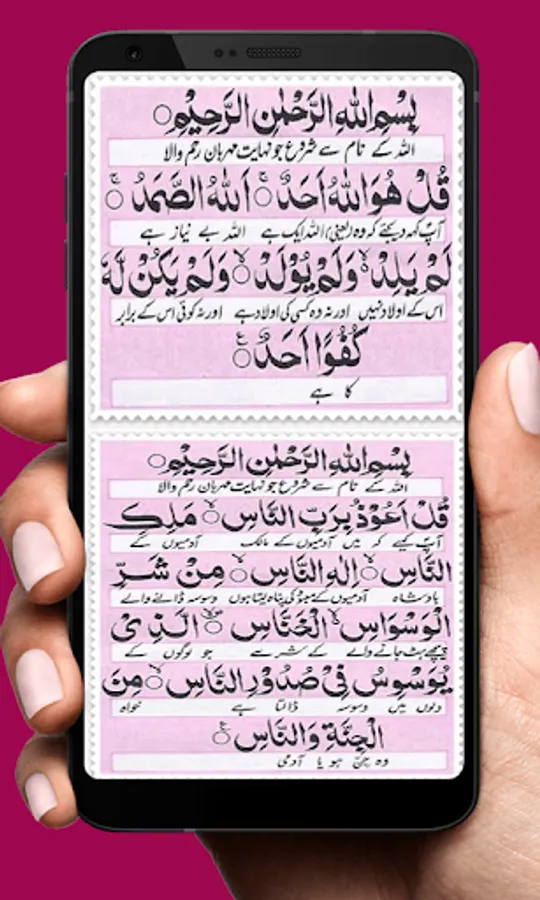 بِسْمِ اللهِ الرَّحْمٰنِ الرَّحِيْمِ
اللہ کے نام سے شروع جو نہایت مہربان رحم والا
قُلْ هُوَ اللهُ اَحَدٌ ۚ اَللهُ الصَّمَدُ ۚ
آپ کہہ دیجئے کہ وہ (یعنی) اللہ ایک ہے اللہ بے نیاز ہے
لَمْ يَلِدْ ۙ وَلَمْ يُوْلَدْ ۙ وَلَمْ يَكُنْ لَّهٗ
اس کے اولاد نہیں اور نہ وہ کسی کی اولاد ہے اور نہ کوئی اس کے برابر
كُفُوًا اَحَدٌ ع
کا ہے
بِسْمِ اللهِ الرَّحْمٰنِ الرَّحِيْمِ
اللہ کے نام سے شروع جو نہایت مہربان رحم والا
قُلْ اَعُوْذُ بِرَبِّ النَّاسِ ۙ مَلِكِ
آپ کہیے کہ میں آدمیوں کے مالک آدمیوں کے
النَّاسِ ۙ اِلٰهِ النَّاسِ ۙ مِنْ شَرِّ
بادشاہ آدمیوں کے معبود کی پناہ لیتا ہوں وسوسہ ڈالنے والے
الْوَسْوَاسِ ۙ الْخَنَّاسِ ۙ الَّذِيْ
پیچھے ہٹ جانے والے کے شر سے جو لوگوں کے
يُوَسْوِسُ فِيْ صُدُوْرِ النَّاسِ ۙ مِنَ
دلوں میں وسوسہ ڈالتا ہے خواہ
الْجِنَّةِ وَالنَّاسِ ع
وہ جن ہو یا آدمی